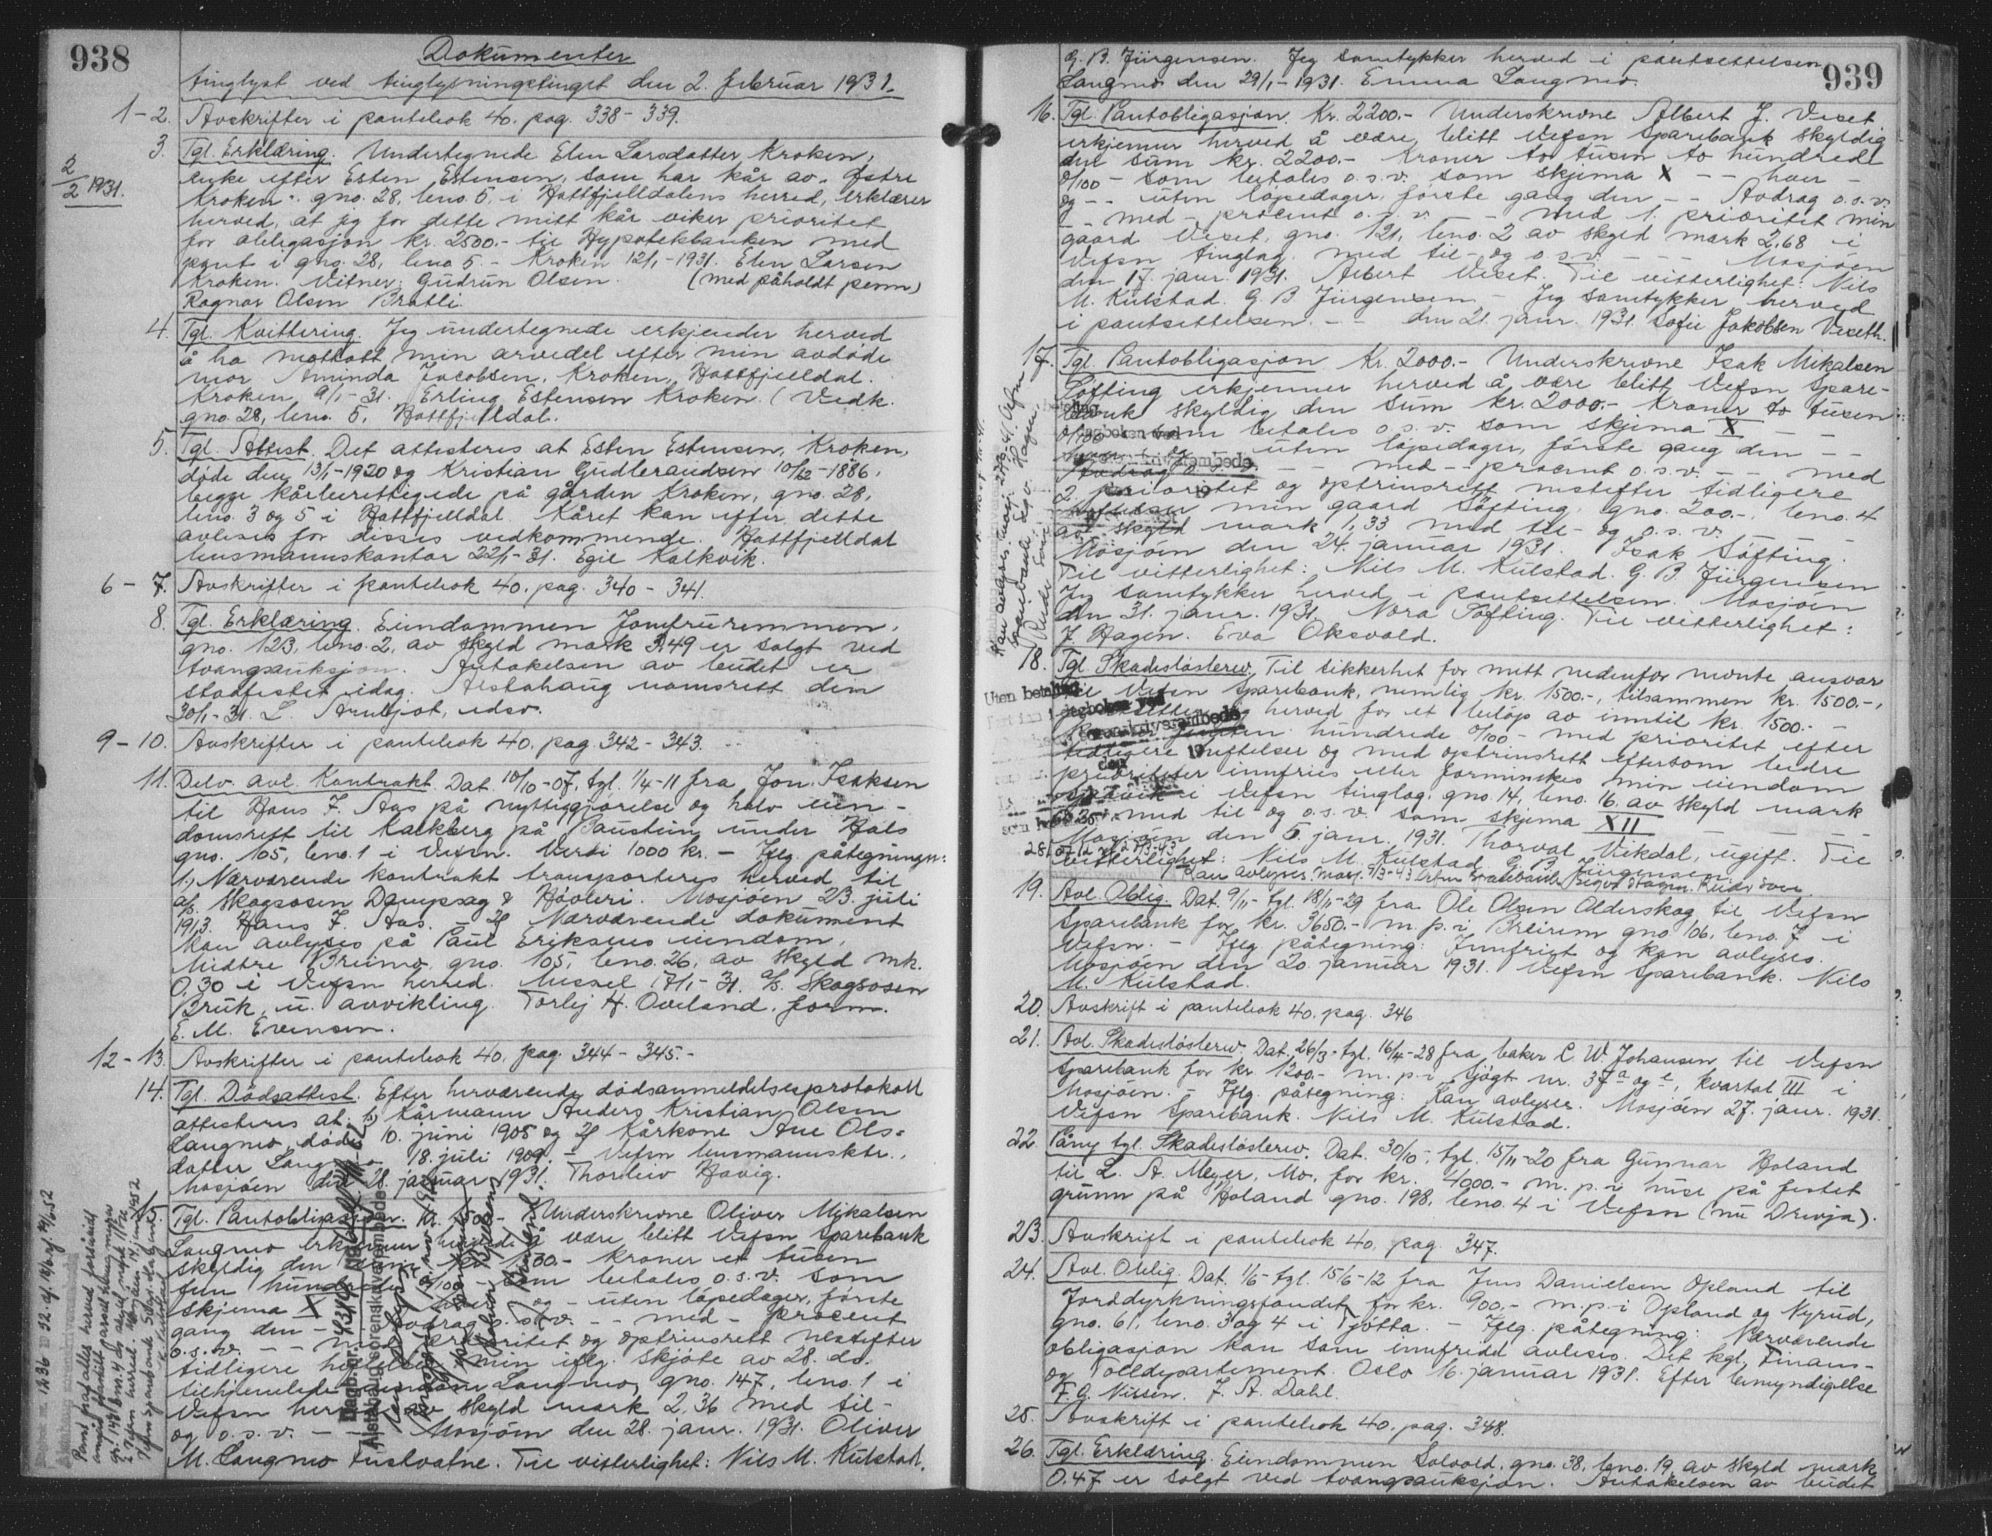 938
Dokumenter
tinglyst ved tinglysningstinget den 2. februar 1931.
1-2. Avskrifter i pantebok 40, pag. 338-339.
2/2 1931.
3. Tgl. Erklæring. Undertegnede Elen Larsdatter Kroken,
enke efter Esten Estensen, som har kår av Østre
Kroken gno. 28, bno. 5, i Hattfjelldalens herred, erklærer
herved, at jeg for dette mitt kår viker prioritet
for obligasjon kr. 2500.- til Hypotekbanken med
pant i gno. 28, bno. 5. - Kroken 12/1-1931. Elen Larsen
Kroken. Vitner: Gudrun Olsen. (med påholdt penn)
Ragnar Olsen Bratli.
4. Tgl. Kvittering. Jeg undertegnede erkjender herved
å ha mottatt min arvedel efter min avdøde
mor Aminda Jacobsen, Kroken, Hattfjelldal.
Kroken 9/1-31. Erling Estensen Kroken. (Vedk.
gno. 28, bno. 5, Hattfjelldal.
5. Tgl. Attest. Det attesteres at Esten Estensen, Kroken,
døde den 13/1-1920 og Kristian Gudbrandsen 10/12-1886,
begge kårberettigede på gården Kroken, gno. 28,
bno. 3 og 5 i Hattfjelldal. Kåret kan efter dette
avlyses for disses vedkommende. Hattfjelldal
lensmannskontor 22/1-31. Egil Kalkvik.
6-7. Avskrifter i pantebok 40, pag. 340-341.
8. Tgl. Erklæring. Eiendommen Jomfruremmen,
gno. 123, bno. 2, av skyld mark 3,49 er solgt ved
tvangsauksjon. Antakelsen av budet er
stadfestet idag. Alstahaug namsrett den
30/1-31. L. Arnljot, edsv.
9-10. Avskrifter i pantebok 40, pag. 342-343.
11. Delv. avl. Kontrakt. Dat. 10/10-07, tgl. 1/4-11 fra Jon Isaksen
til Hans F. Aas på nyttiggjørelse og halv eien-
domsrett til kalkberg på Baustein under Hals
gno. 105, bno. 1 i Vefsn. Verdi 1000 kr. - Iflg. påtegninger:
1, Nærværende kontrakt transporteres herved til
a/s Skogsosen Dampsag & Høvleri. Mosjøen 23. juli
1913. Hans F. Aas. - 2, Nærværende dokument
kan avlyses på Paul Eriksens eiendom,
Midtre Breimo, gno. 105, bno. 26, av skyld mk.
0,30 i Vefsn herred. 17/1-31. a/s Skogsosen
Bruk, u. avvikling. Torlej H. Oveland, form.
E. M. Evensen.
12-13. Avskrifter i pantebok 40, pag. 344-345.-
14. Tgl. Dödsattest. Efter herværende dödsanmeldelsesprotokoll
attesteres at: 1, Kårmann Anders Kristian Olsen
Langmo döde 10. juni 1905 og 2, Kårkone Ane Ols-
datter Langmo 18. juli 1909. - Vefsn lensmannsktr.,
Mosjøen den 28. januar 1931. Thorleiv Havig.
15. Tgl. Pantobligasjon. Kr. 1500.- Underskrevne Oliver Mikalsen
Langmo erkjenner herved å være blitt Vefsn Sparebank
skyldig den sum kr. 1500.- kroner et tusen
fem hundrede 0/100 - som betales o.s.v. som
skjema X - - hver - og - uten løpedager, første
gang den - - Avdrag o.s.v. - - med - procent
o.s.v. - - med prioritet og optrinsrett nestefter
tidligere heftelser min iflg. skjöte av 28. ds.
tilhjemlede eiendom Langmo, gno. 147, bno. 1 i
Vefsn herred av skyld mark 2,36 med til-
og o.s.v. - - Mosjøen den 28. janr. 1931. Oliver
M. Langmo Fustvatne. Til vitterlighet: Nils M. Kulstad.
939
G. B. Jürgensen. Jeg samtykker herved i pantsettelsen
Langmo den 29/1-1931. Emma Langmo.
16. Tgl. Pantobligasjon. Kr. 2200.- Underskrevne Albert J. Viset
erkjenner herved å være blitt Vefsn Sparebank skyldig
den sum kr. 2200.- kroner to tusen to hundrede
0/100 - som betales o.s.v. som skjema X - - hver -
og - - uten løpedager, første gang den - - Avdrag o.s.v.
- - med - procent o.s.v. - - med 1. prioritet min
gaard Viset, gno. 121, bno. 2 av skyld mark 2,68 i
Vefsn tinglag, med til- og o.s.v. - - - Mosjøen
den 17. janr. 1931. Albert Viset. Til vitterlighet: Nils
M. Kulstad. G. B. Jürgensen. - Jeg samtykker herved
i pantsettelsen. - - den 21. janr. 1931. Sofie Jakobsen Viseth.
17. Tgl. Pantobligasjon Kr. 2000.- Underskrevne Isak Mikalsen
Söfting erkjenner herved å være blitt Vefsn Spare-
bank skyldig den sum kr. 2000.- kroner to tusen
0/100 - som betales o.s.v. som skjema X - -
- - uten løpedager, første gang den - -
Avdrag o.s.v. - - med - procent o.s.v. - - med
2. prioritet og optrinsrett nestefter tidligere
heftelser min gaard Söfting, gno. 200.-, bno. 4
av skyld mark 1,33 med til og o.s.v. -
Mosjøen den 24. januar 1931. Isak Söfting.
Til vitterlighet: Nils M. Kulstad. G. B. Jürgensen
Jeg samtykker herved i pantsettelsen. Mosjøen
den 31. janr. 1931. Nora Söfting. Til vitterlighet:
J. Hagen. Eva Oksvold.
18. Tgl. Skadeslösbrev. Til sikkerhet for mitt nedenfor nevnte ansvar
til Vefsn Sparebank, nemlig kr. 1500.-, tilsammen kr. 1500.-,
pantsetter jeg herved for et beløp av inntil kr. 1500.- -
kroner femten hundrede 0/100 - med prioritet efter
tidligere heftelser og med optrinsrett eftersom bedre
prioriteter innfries eller forminskes min eiendom
i Vefsn tinglag, gno. 14, bno. 16, av skyld mark
med til og o.s.v. som skjema XII - -
Mosjøen den 5. janr. 1931. Thorval Vikdal, ugift. Til
vitterlighet: Nils M. Kulstad G. B. Jürgensen
Uten betaling
19. Avl. Oblig. Dat. 9/11- tgl. 18/11-29 fra Ole Olsen Olderskog til Vefsn
Sparebank for kr. 3650.- m.p. i Breirem gno. 106, bno. 7 i
Vefsn. - Iflg. påtegning: Innfrigt og kan avlyses.
Mosjøen den 20. januar 1931. Vefsn Sparebank. Nils
M. Kulstad.
20. Avskrift i pantebok 40, pag. 346
21. Avl. Skadeslösbrev. Dat. 26/3- tgl. 16/4-28 fra baker C. W. Johansen til Vefsn
Sparebank for kr. 1200.- m.p. i Sjøgt. nr. 37 a og e, kvartal III i
Mosjøen. - Iflg. påtegning: Kan avlyses. Mosjøen 27. janr. 1931.
Vefsn Sparebank. Nils M. Kulstad.
22. Påny tgl. Skadeslösbrev. Dat. 30/10-, tgl. 15/11-20 fra Gunnar Holand
til L. A. Meyer, Mo, for kr. 4000.- m.p. i huse på festet
grunn på Holand gno. 198, bno. 4 i Vefsn (nu Drevja).
23. Avskrift i pantebok 40, pag. 347.
24. Avl. Oblig. Dat. 1/6- tgl. 15/6-12 fra Jens Danielsen Opland til
Jorddyrkningsfondet for kr. 900.- m.p. i Opland og Nyrud,
gno. 61, bno. 3 og 4 i Tjötta. - Iflg. påtegning: Nærværende
obligasjon kan som innfridd avlyses. Det kgl. Finans-
og Tolldepartement. Oslo 16. januar 1931. Efter bemyndigelse
F. G. Nissen. F. A. Dahl.
25. Avskrift i pantebok 40, pag. 348.
26. Tgl. Erklæring. Eiendommen Solvold, gno. 38, bno. 19, av skyld mark
0,47 er solgt ved tvangsauksjon. Antakelsen av budet